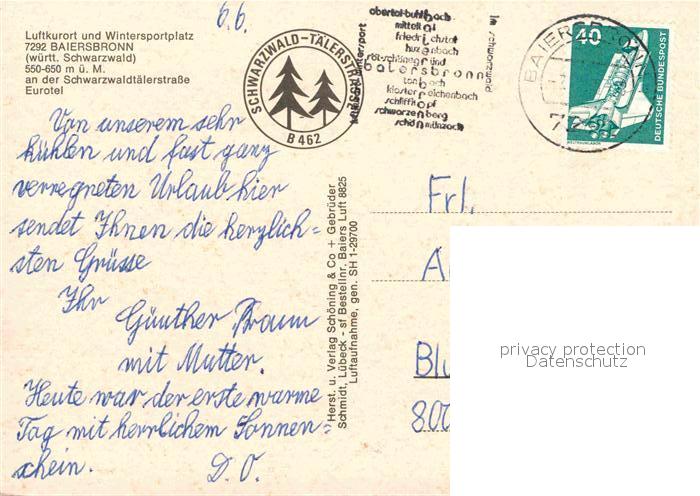 6.6.
Luftkurort und Wintersportplatz
7292 BAIERSBRONN
(württ. Schwarzwald)
550-650 m ü. M.
an der Schwarzwaldtälerstraße
Eurotel
SCHWARZWALD-TÄLERSTRASSE
B 462
obertal-buhlbach
mitteltal
friedrichstal
huzenbach
baiersbronn
tonbach
klosterreichenbach
schliffkopf
schwarzenberg
schönmünzach
im schwarzwald
BAIERSBRONN
40
DEUTSCHE BUNDESPOST
Von unserem sehr
kühlen und fast ganz
verregneten Urlaub hier
sendet Ihnen die herzlich=
sten Grüsse
Ihr
Günther Braun
mit Mutter.
Heute war der erste warme
Tag mit herrlichem Sonnen=
schein.
D. O.
Herst. u. Verlag Schöning & Co + Gebrüder
Schmidt, Lübeck - sf Bestellnr. Baiers Luft 8825
Luftaufnahme, gen. SH 1-29700
Frl.
A
Bl
800
privacy protection
Datenschutz